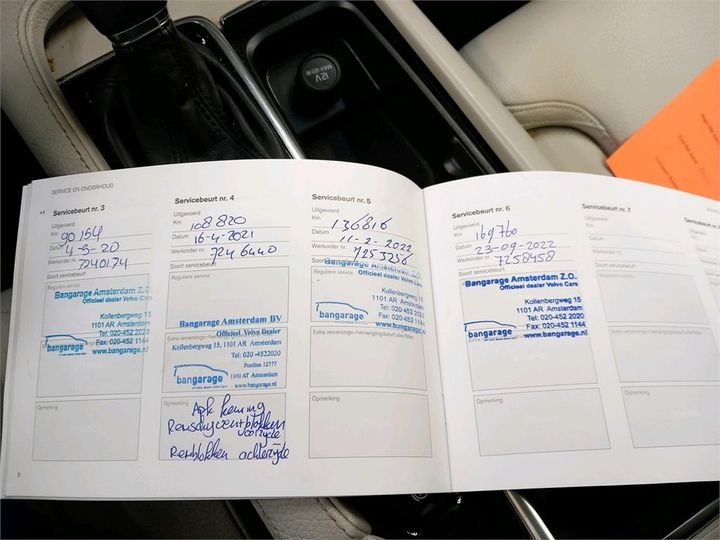 12V
MAX 120W
SERVICE EN ONDERHOUD
Servicebeurt nr. 3
Uitgevoerd
Km 90154
Datum 4-3-20
Werkorder nr. 7240174
Soort servicebeurt
Reguliere service
Bangarage Amsterdam Z.O.
Officieel dealer Volvo Cars
Kollenbergweg 15
1101 AR Amsterdam
Tel: 020-452 2020
Fax: 020-452 1144
www.bangarage.nl
bangarage
Opmerking
Servicebeurt nr. 4
Uitgevoerd
Km 108820
Datum 16-4-2021
Werkorder nr. 7246440
Soort servicebeurt
Reguliere service
Bangarage Amsterdam BV
Officieel Volvo Dealer
Kollenbergweg 15, 1101 AR Amsterdam
Tel: 020 -4522020
Postbus 12777
1100 AT Amsterdam
www.bangarage.nl
bangarage
Opmerking
Apk keuring
voorzijde
Remblokken achterzijde
Servicebeurt nr. 5
Uitgevoerd
Km 136816
Datum 11-2-2022
Werkorder nr. 7253256
Soort servicebeurt
Bangarage Amsterdam Z.O.
Reguliere service
Officieel dealer Volvo Cars
Kollenbergweg 15
1101 AR Amsterdam
Tel: 020-452 2020
Fax: 020-452 1144
www.bangarage.nl
bangarage
Opmerking
Servicebeurt nr. 6
Uitgevoerd
Km 169760
Datum 23-09-2022
Werkorder nr. 7258458
Soort servicebeurt
Bangarage Amsterdam Z.O.
Officieel dealer Volvo Cars
Kollenbergweg 15
1101 AR Amsterdam
Tel: 020-452 2020
Fax: 020-452 1144
www.bangarage.nl
bangarage
Opmerking
Servicebeurt nr. 7
Uitgevoerd
Km
Datum
Werkorder nr.
Soort servicebeurt
Reguliere service
Opmerking